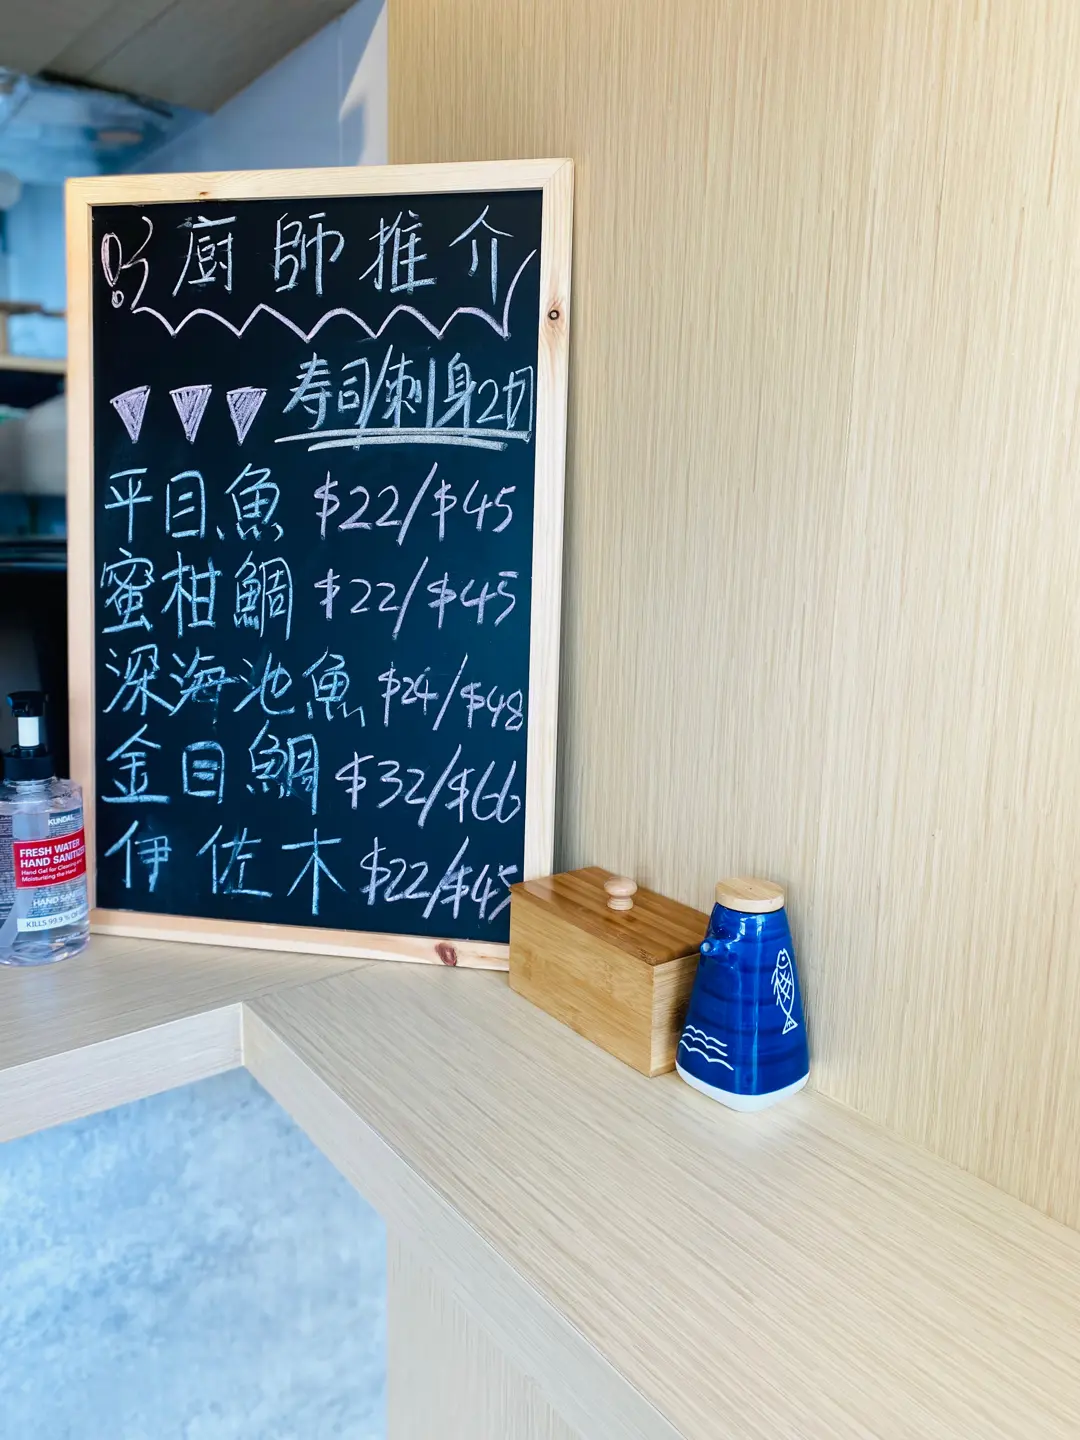 廚師推介
寿司/刺身2切
平目魚 $22/$45
蜜柑鯛 $22/$45
深海池魚 $24/$48
金目鯛 $32/$66
伊佐木 $22/$45
KUNDAL
FRESH WATER
HAND SANITIZER
Hand Gel for Cleaning and
Moisturizing the Hand
HAND SANI
KILLS 99.9 % OF